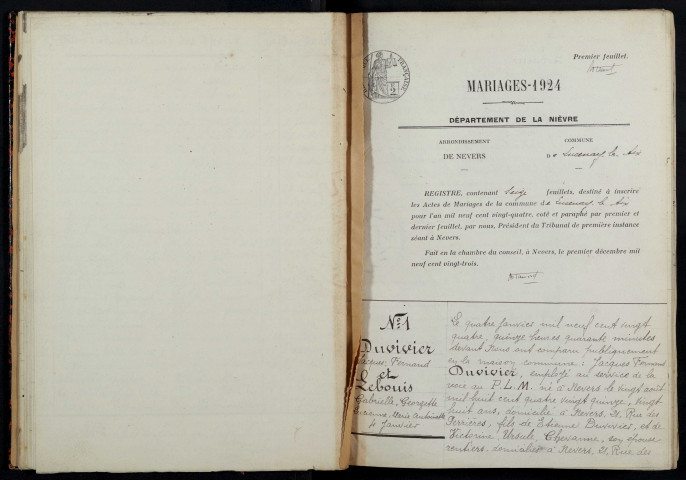 Premier feuillet.
FRANÇAISE
MARIAGES-1924
DÉPARTEMENT DE LA NIÈVRE
ARRONDISSEMENT
DE NEVERS
COMMUNE
De Lucenay le Aix
REGISTRE, contenant seize feuillets, destiné à inscrire
les Actes de Mariages de la commune de Lucenay le Aix
pour l'an mil neuf cent vingt-quatre, coté et paraphé par premier et
dernier feuillet, par nous, Président du Tribunal de première instance
séant à Nevers.
Fait en la chambre du conseil, à Nevers, le premier décembre mil
neuf cent vingt-trois.
N° 1
Duvivier
Jacques, Fernand
et
Lebouis
Gabrielle, Georgette
Suzanne, Marie Antoinette
4 Janvier
Le quatre janvier mil neuf cent vingt
quatre, quinze heures quarante minutes
devant Nous ont comparu publiquement
en la maison commune : Jacques Fernand
Duvivier, employé au service de la
voie au P.L.M. né à Nevers le vingt août
mil huit cent quatre vingt quinze, vingt
huit ans, domicilié à Nevers, 21, Rue des
Perrières, fils de Etienne Duvivier, et de
Victorine, Ursule, Chevanne, son épouse
rentiers, domiciliés à Nevers, 21, Rue des